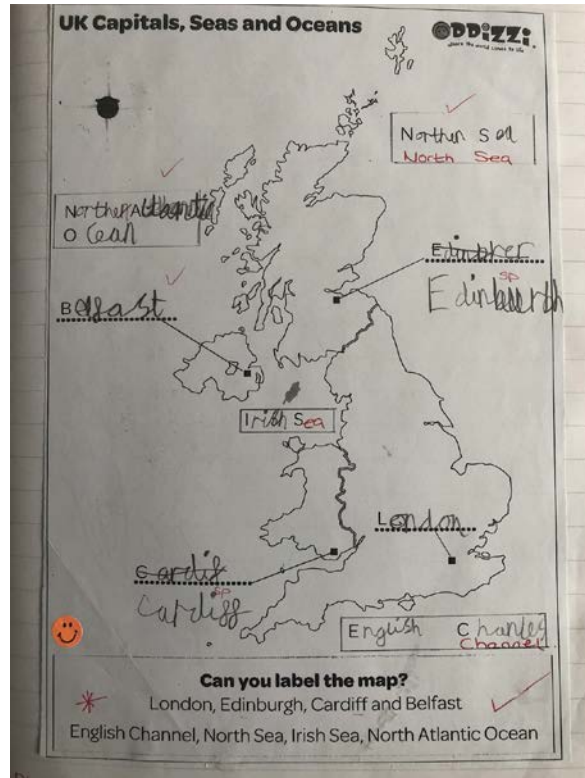 UK Capitals, Seas and Oceans
ODDiZZi
where the world comes to life
Northen Sea
North Sea
Northen Atlantic
Ocean
Edinbker
sp
Edinbuurth
Belfast
Irish Sea
London
Cardif
sp
Cardiff
English Chanley
Channel
Can you label the map?
London, Edinburgh, Cardiff and Belfast
English Channel, North Sea, Irish Sea, North Atlantic Ocean